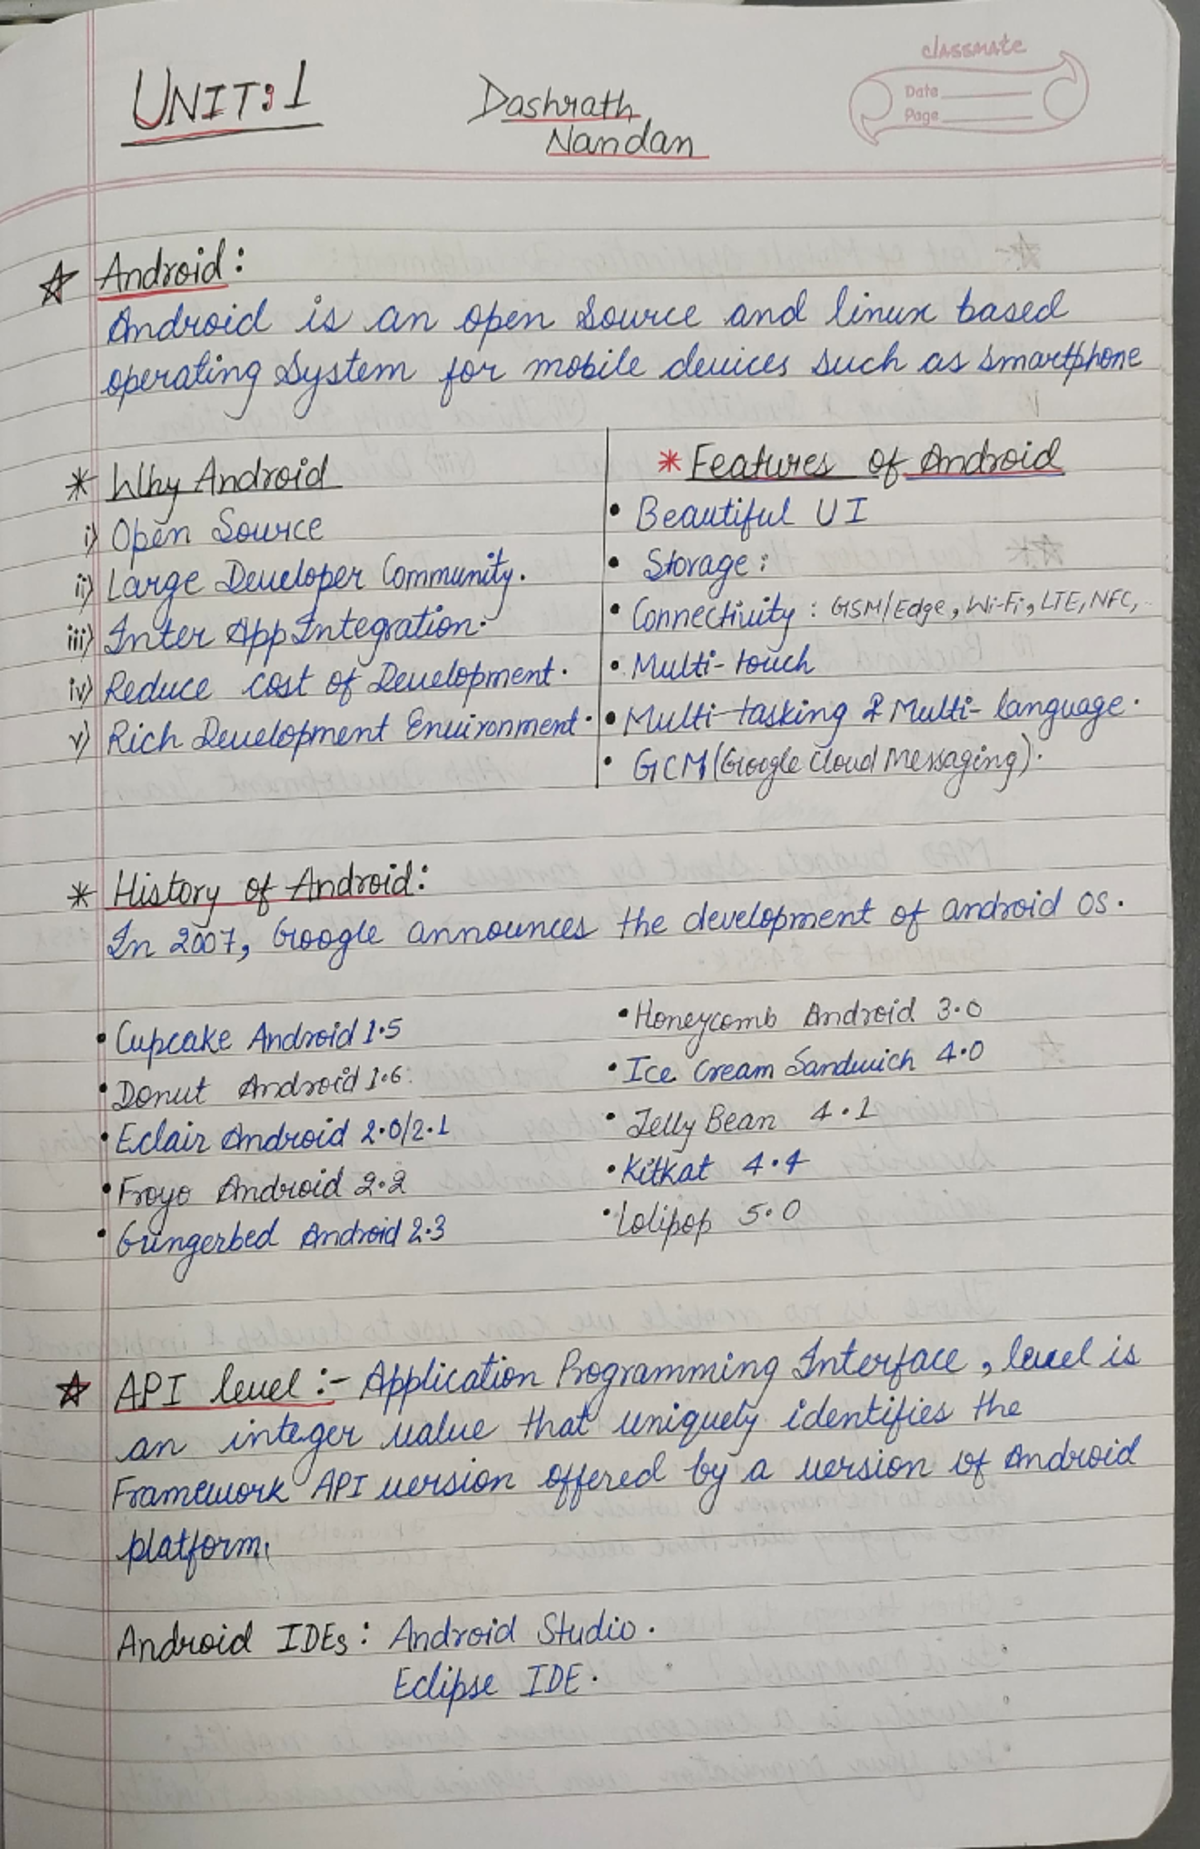 classmate
Date
Page
UNIT: 1
Dashrath
Nandan
☆ Android:
Android is an open source and linux based
operating system for mobile devices such as smartphone
* Why Android
i) Open Source
ii) Large Developer Community.
iii) Inter App Integration.
iv) Reduce cost of Development.
v) Rich Development Environment.
* Features of Android
• Beautiful UI
• Storage:
• Connectivity : GSM/Edge, Wi-Fi, LTE, NFC,
• Multi-touch
• Multi-tasking & Multi-language.
• GCM (Google Cloud Messaging).
* History of Android:
In 2007, Google announces the development of android OS.
• Cupcake Android 1.5
• Donut Android 1.6.
• Eclair Android 2.0/2.1
• Froyo Android 2.2
• Gingerbed Android 2.3
• Honeycomb Android 3.0
• Ice Cream Sandwich 4.0
• Jelly Bean 4.1
• Kitkat 4.4
• Lolipop 5.0
☆ API level :- Application Programming Interface, level is
an integer value that uniquely identifies the
Framework API version offered by a version of Android
platform.
Android IDEs : Android Studio.
Eclipse IDE.